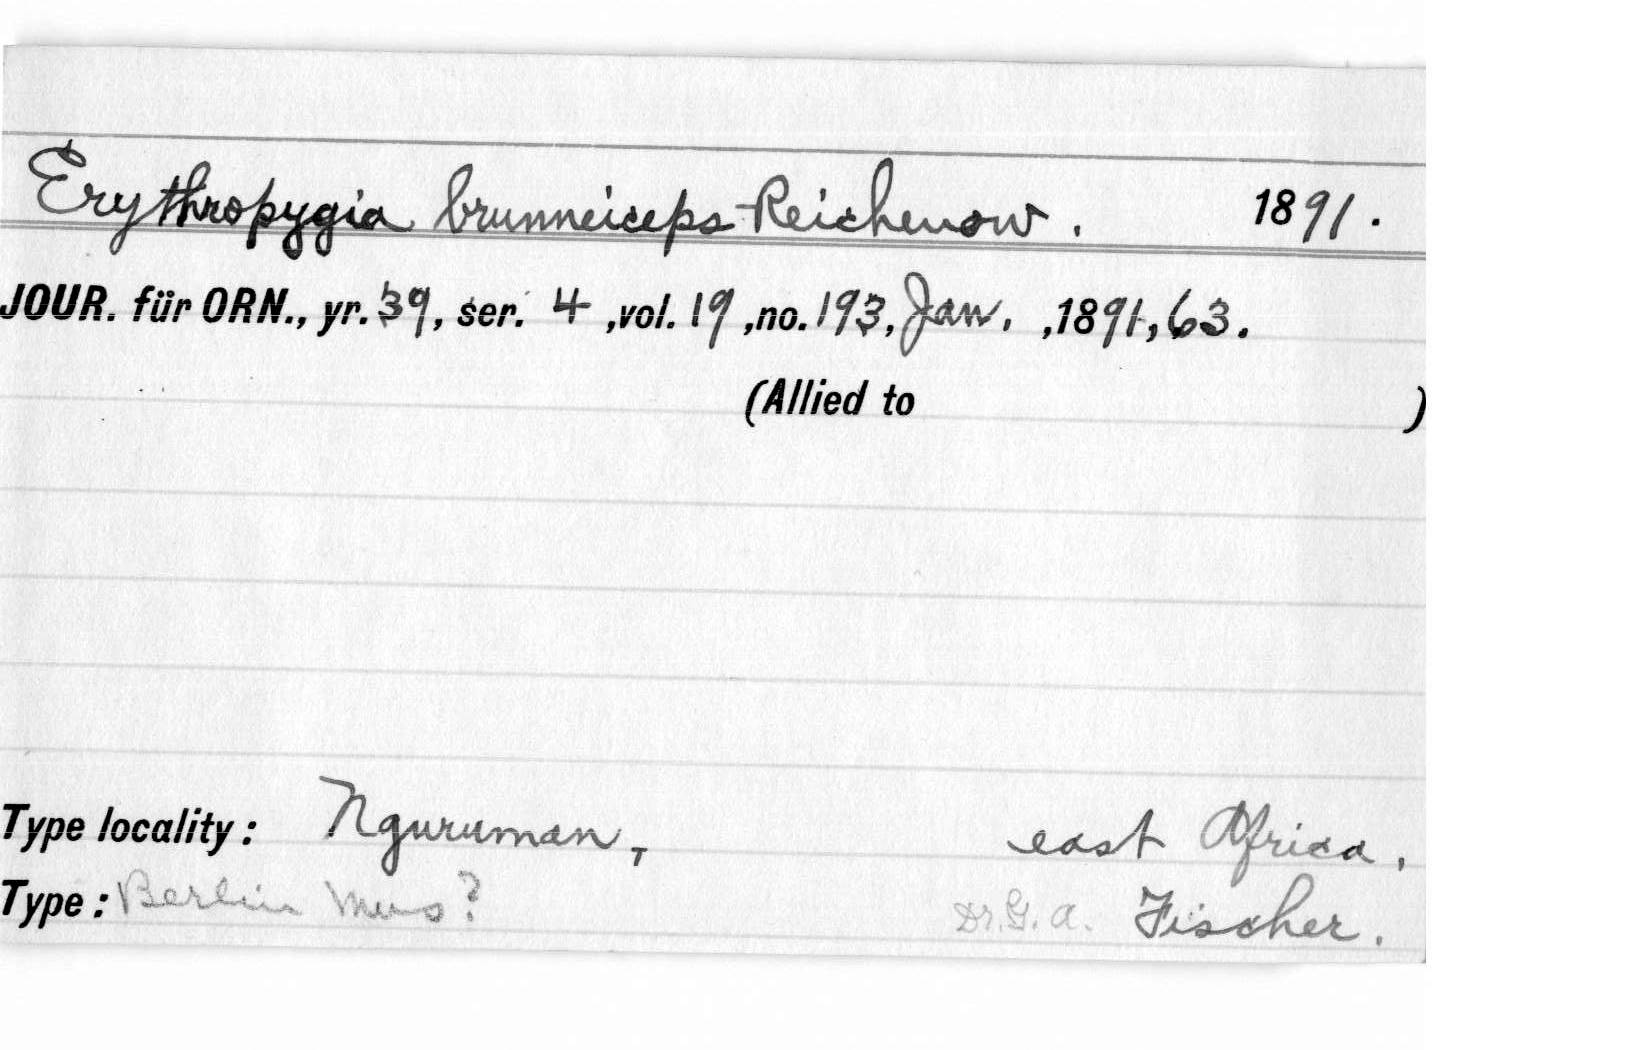 Erythropygia brunneiceps Reichenow. 1891.
JOUR. für ORN., yr. 39, ser. 4, vol. 19, no. 193, Jan., 1891, 63.
(Allied to )
Type locality: Nguruman, east Africa.
Type: Berlin Mus? Dr. G. A. Fischer.